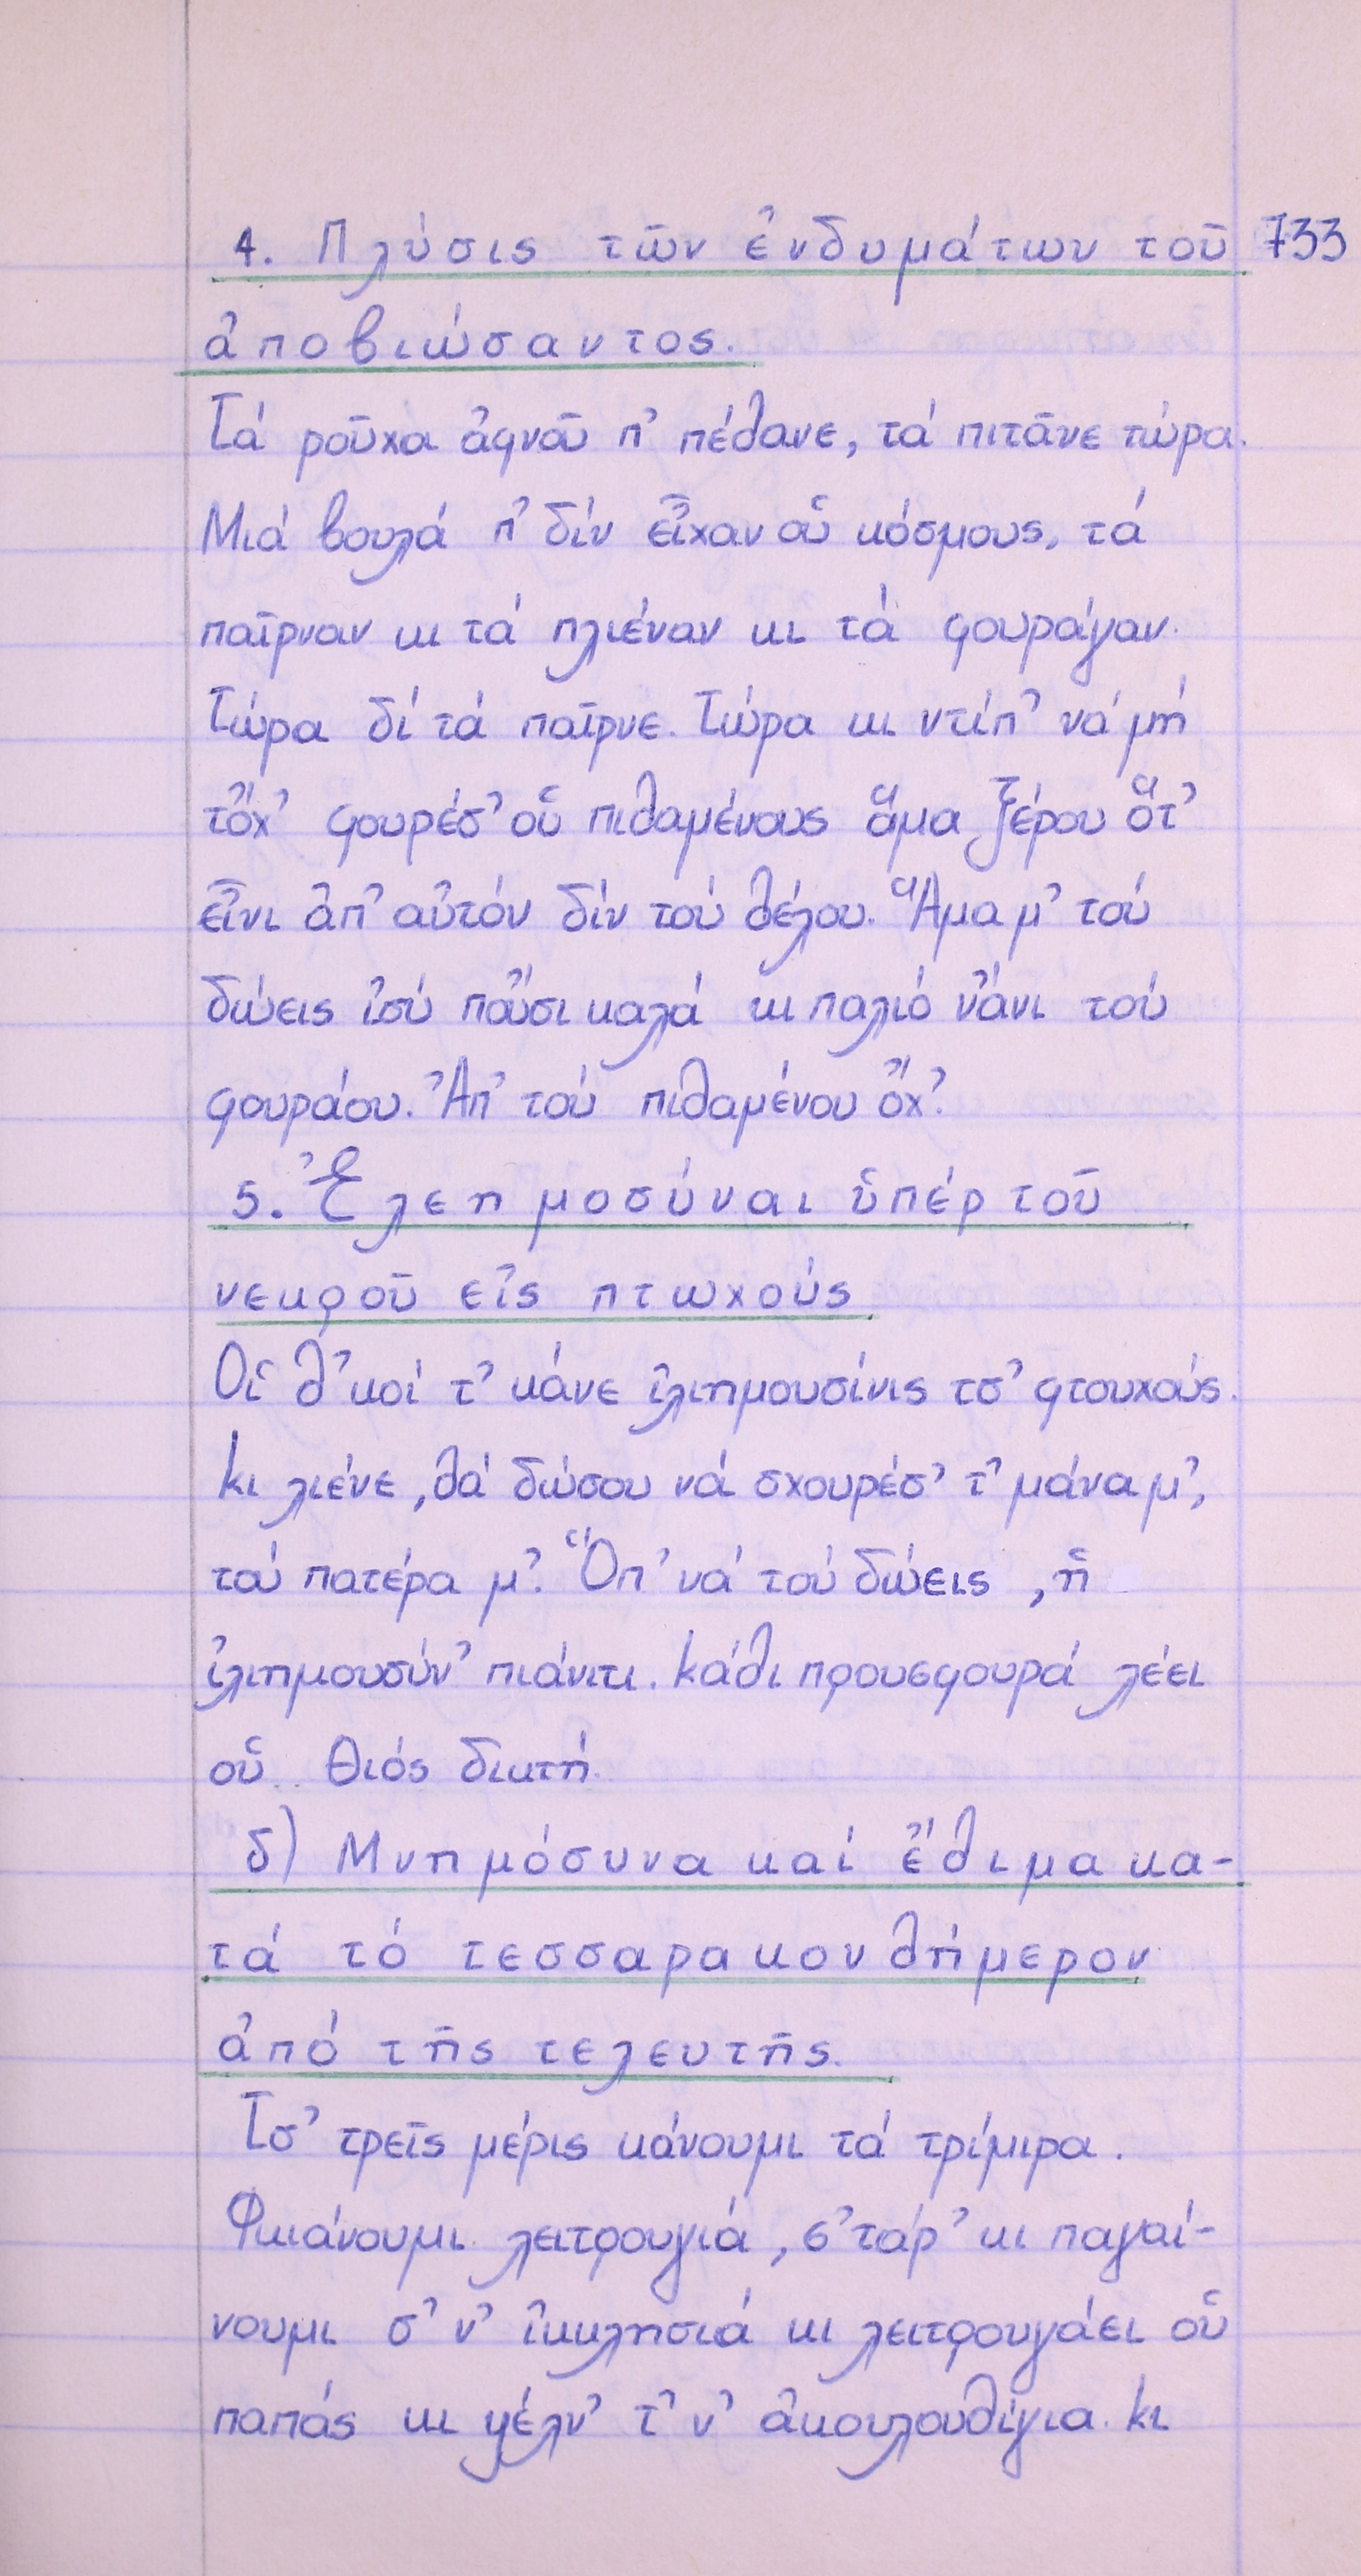 4. Πλύσις τῶν ἐνδυμάτων τοῦ 733
ἀποβιώσαντος.
Τά ροῦχα ἀφνοῦ π' πέθανε, τά πιτᾶνε τώρα.
Μιά βουλά π' δίν εἶχαν οὗ κόσμους, τά
παῖρναν κι τά πλιέναν κι τά φουράγαν.
Τώρα δί τά παῖρνε. Τώρα κι ντίπ' νά μή
τὄχ' φουρέσ' οὗ πιθαμένους ἅμα ξέρου ὅτ'
εἶνι ἀπ' αὐτόν δίν τού θέλου. Ἅμα μ' τού
δώεις ἰσύ ποὔσι καλά κι παλιό νἄνι τού
φουράου. Ἀπ' τού πιθαμένου ὄχ'.
5. Ἐλεημοσύναι ὑπέρ τοῦ
νεκροῦ εἰς πτωχούς
Οἱ θ'κοί τ' κάνε ἰλιημουσίνις τσ' φτουχούς.
κι λιένε, θά δώσου νά σχουρέσ' τ' μάνα μ',
τού πατέρα μ'. Ὅπ' νά τού δώεις, ἡ
ἰλιημουσύν' πιάνιτι. κάθι προυσφουρά λέει
οὗ Θιός δικτή.
δ) Μνημόσυνα καί ἔθιμα κα-
τά τό τεσσαρακονθήμερον
ἀπό τῆς τελευτῆς.
Τσ' τρεῖς μέρις κάνουμι τά τρίμιρα.
Φκιάνουμι λειτρουγιά, σ'τάρ' κι παγαί-
νουμι σ' ν' ἰκκλησιά κι λειτρουγάει οὗ
παπάς κι ψέλν' τ' ν' ἀκουλουθίγια. κι